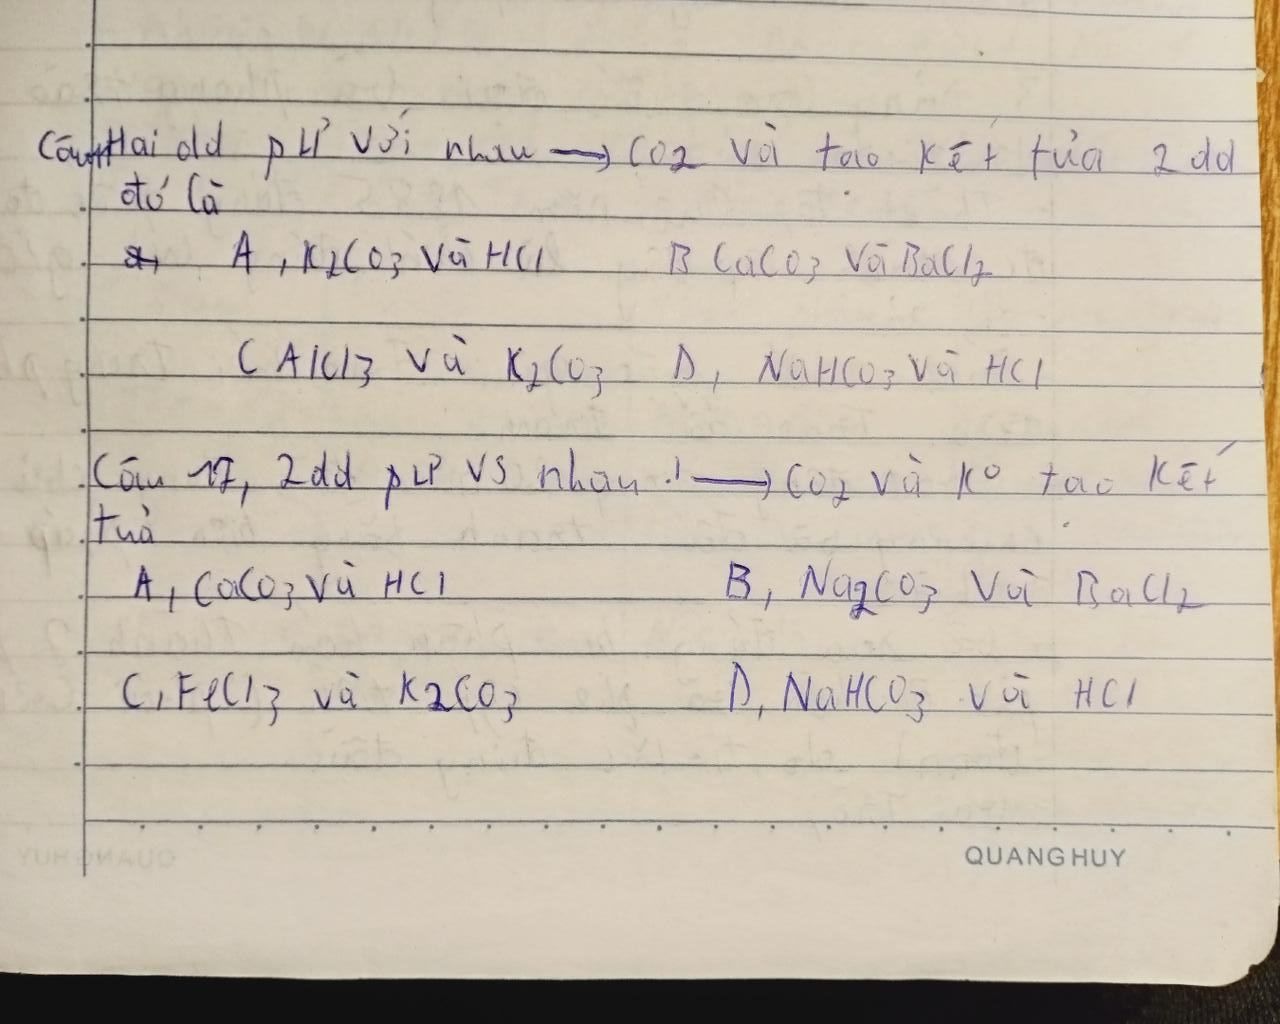 Hai dd pứ với nhau → CO2 và tạo kết tủa 2 dd
đó là
A, K2CO3 và HCl B CaCO3 và BaCl2
C AlCl3 và K2CO3 D, NaHCO3 và HCl
Câu 17, 2dd pứ vs nhau → CO2 và ko tạo kết
tuả
A, CaCO3 và HCl B, Na2CO3 và BaCl2
C, FeCl3 và K2CO3 D, NaHCO3 và HCl
QUANG HUY